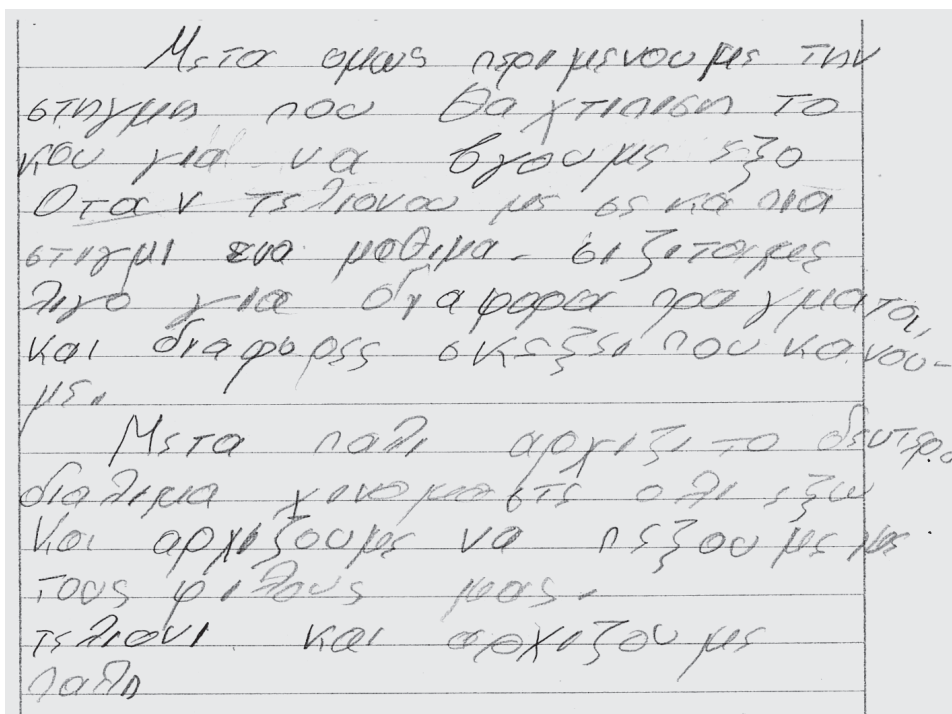 Μετα ομως περιμενουμε την
στηγμη που θα χτιπιση το
κου για να βγουμε εξο
Οταν τελιονου με σε καπια
στιγμι ενα μαθιμα. σιζιταμε
λιγο για διαφορα πραγματα,
και διαφορες σκεζει που κανου-
με.
Μετα παλι αρχιζι το δευτερο
διαλιμα χινομαστε ολι εξω
Και αρχιζουμε να πεζουμε με
τους φιλους μας.
τελιονι και αρχιζουμε
παλη